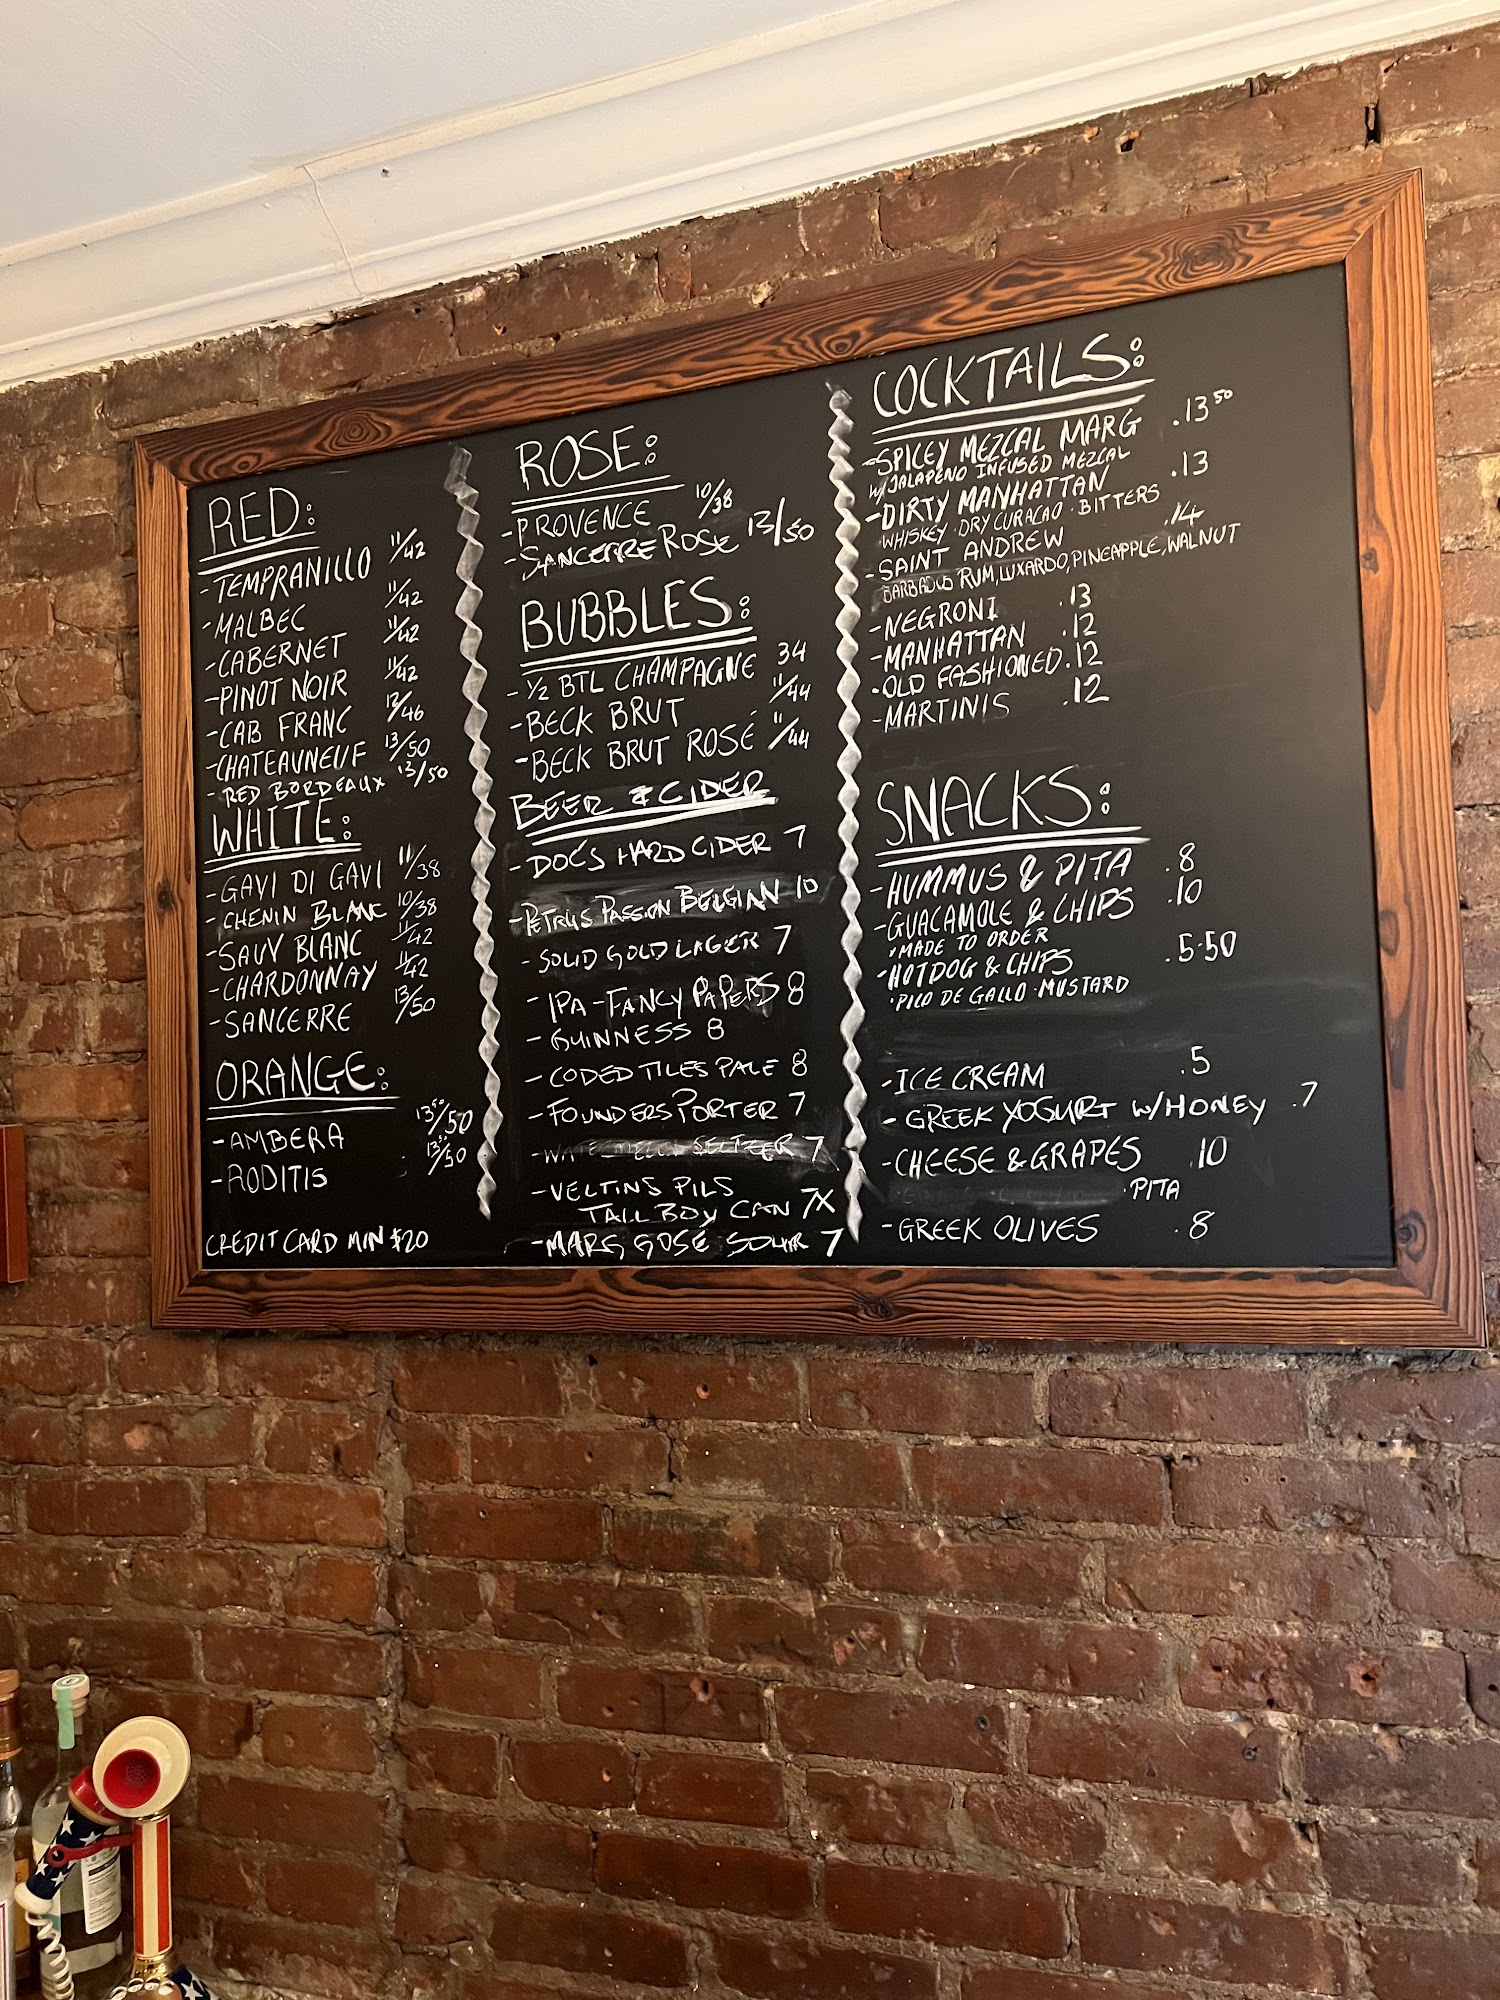 RED:
-TEMPRANILLO 11/42
-MALBEC 11/42
-CABERNET 11/42
-PINOT NOIR 11/42
-CAB FRANC 12/46
-CHATEAUNEUF 13/50
-RED BORDEAUX 13/50
WHITE:
-GAVI DI GAVI 11/38
-CHENIN BLANC 10/38
-SAUV BLANC 11/42
-CHARDONNAY 11/42
-SANCERRE 13/50
ORANGE:
-AMBERA 13⁵⁰/50
-RODITIS 13⁵⁰/50
CREDIT CARD MIN $20
ROSE:
-PROVENCE 10/38
-SANCERRE ROSE 13/50
BUBBLES:
-½ BTL CHAMPAGNE 34
-BECK BRUT 11/44
-BECK BRUT ROSÉ 11/44
BEER & CIDER
-DOC'S HARD CIDER 7
-PETRUS PASSION BELGIAN 10
-SOLID GOLD LAGER 7
-IPA-FANCY PAPERS 8
-GUINNESS 8
-CODED TILES PALE 8
-FOUNDERS PORTER 7
-WATERMELON SELTZER 7
-VELTINS PILS
TALL BOY CAN 7X
-MARG GOSÉ SOUR 7
COCKTAILS:
-SPICEY MEZCAL MARG .13⁵⁰
W/JALAPEÑO INFUSED MEZCAL
-DIRTY MANHATTAN .13
·WHISKEY·DRY CURACAO·BITTERS
-SAINT ANDREW .14
BARBADOS RUM, LUXARDO, PINEAPPLE, WALNUT
-NEGRONI .13
-MANHATTAN .12
·OLD FASHIONED .12
-MARTINIS .12
SNACKS:
-HUMMUS & PITA .8
-GUACAMOLE & CHIPS .10
*MADE TO ORDER
-HOTDOG & CHIPS .5·50
·PICO DE GALLO·MUSTARD
-ICE CREAM .5
-GREEK YOGURT W/HONEY .7
-CHEESE & GRAPES .10
·PITA
-GREEK OLIVES .8